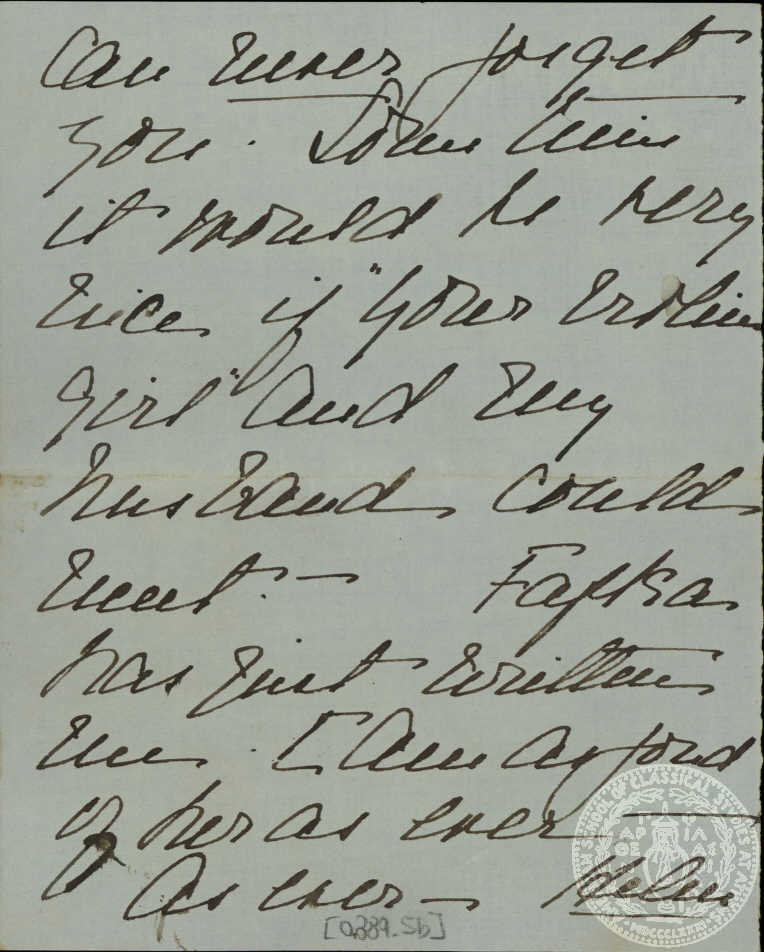 can never forget
you. Sometime
it would be very
nice if "your violin
girl" and my
husband could
meet. —
has just written
me. I am as fond
of her as ever —
As ever — Helen
[0389.Sb]
SCHOOL OF CLASSICAL STUDIES AT